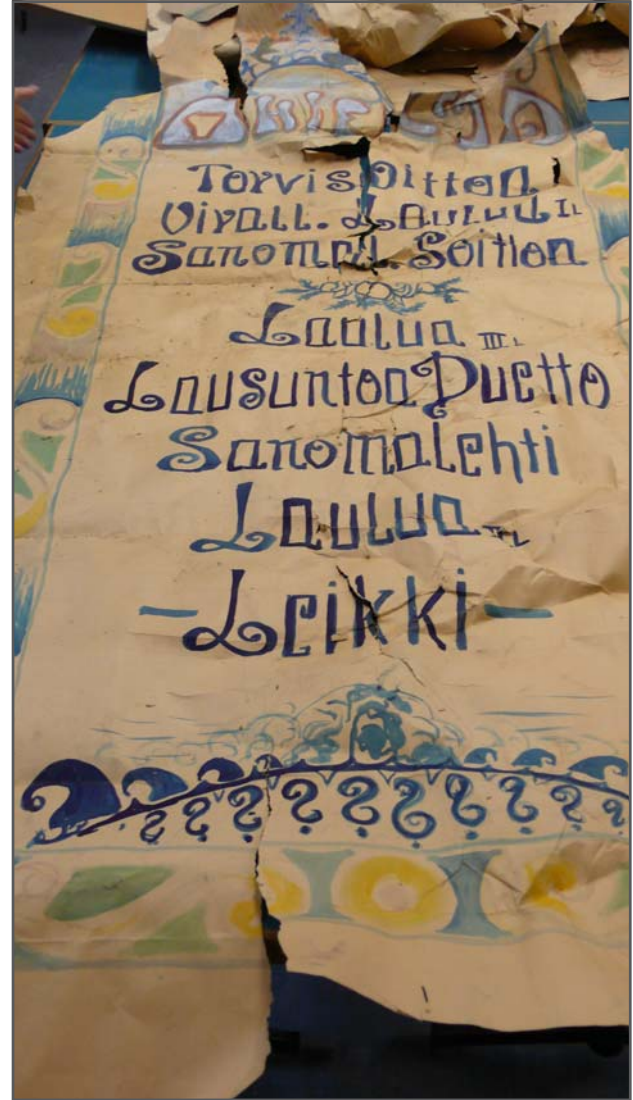 Torvisoittoa
Virall. Laulua
Soittoa
Laulua III
Lausuntoa Duetto
Sanomalehti
Laulua
-Leikki-